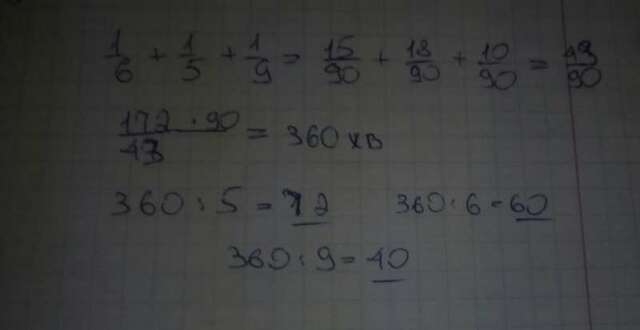 1/6 + 1/5 + 1/9 = 15/90 + 18/90 + 10/90 = 43/90
172 · 90 / 43 = 360 хв
360 : 5 = 72 360 : 6 = 60
360 : 9 = 40